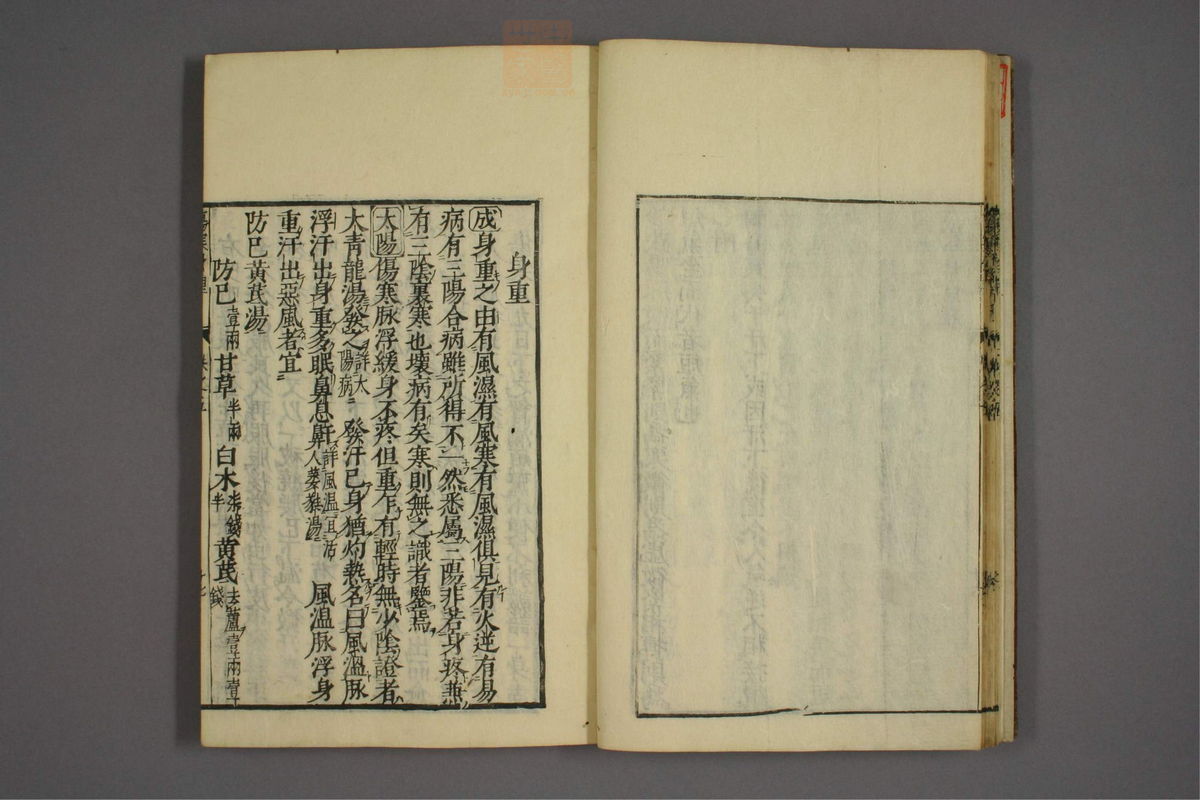 身重
成身重之由有風濕有風寒有風濕俱見有火逆有易
病有三陽合病雖所得不一然悉屬三陽非若身疼兼
有三陰裏寒也壞病有矣寒則無之識者鑒焉
太陽傷寒脉浮緩身不疼但重乍有輕時無少陰證者
大青龍湯發之詳太陽病 發汗已身猶灼熱名曰風溫脉
浮汗出身重多眠鼻息鼾詳風溫宜活人葳蕤湯 風溫脉浮身
重汗出惡風者宜
防巳黃芪湯
防巳壹兩 甘草半兩 白朮柒錢半 黃芪去蘆壹兩壹錢